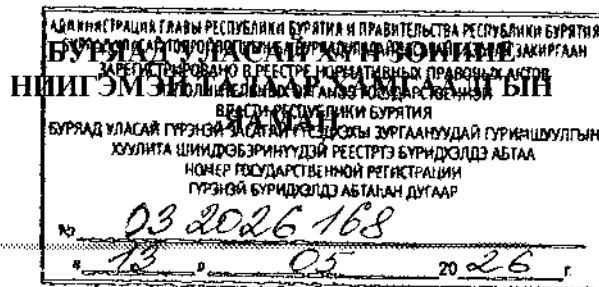 АДМИНИСТРАЦИЯ ГЛАВЫ РЕСПУБЛИКИ БУРЯТИЯ И ПРАВИТЕЛЬСТВА РЕСПУБЛИКИ БУРЯТИЯ
БУРЯАД УЛАСАЙ ХҮН ЗОНИИЕ
ЗАРЕГИСТРИРОВАНО В РЕЕСТРЕ НОРМАТИВНЫХ ПРАВОВЫХ АКТОВ
НИИГЭМЭЙ ТАЛААР ХАМГААЛГЫН
ИСПОЛНИТЕЛЬНЫХ ОРГАНОВ ГОСУДАРСТВЕННОЙ
ВЛАСТИ РЕСПУБЛИКИ БУРЯТИЯ
ЯАМАН
БУРЯАД УЛАСАЙ ГҮРЭНЭЙ ЗАСАГАЙ ЗУРГААНУУДАЙ ГУРИМШУУЛГЫН
ХУУЛИТА ШИИДХЭБЭРИНҮҮДЭЙ РЕЕСТРТЭ БҮРИДХЭЛДЭ АБТАА
НОМЕР ГОСУДАРСТВЕННОЙ РЕГИСТРАЦИИ
ГҮРЭНЭЙ БҮРИДХЭЛДЭ АБТАҺАН ДУГААР
№ 03 2026 168
" 13 " 05 20 26 г.